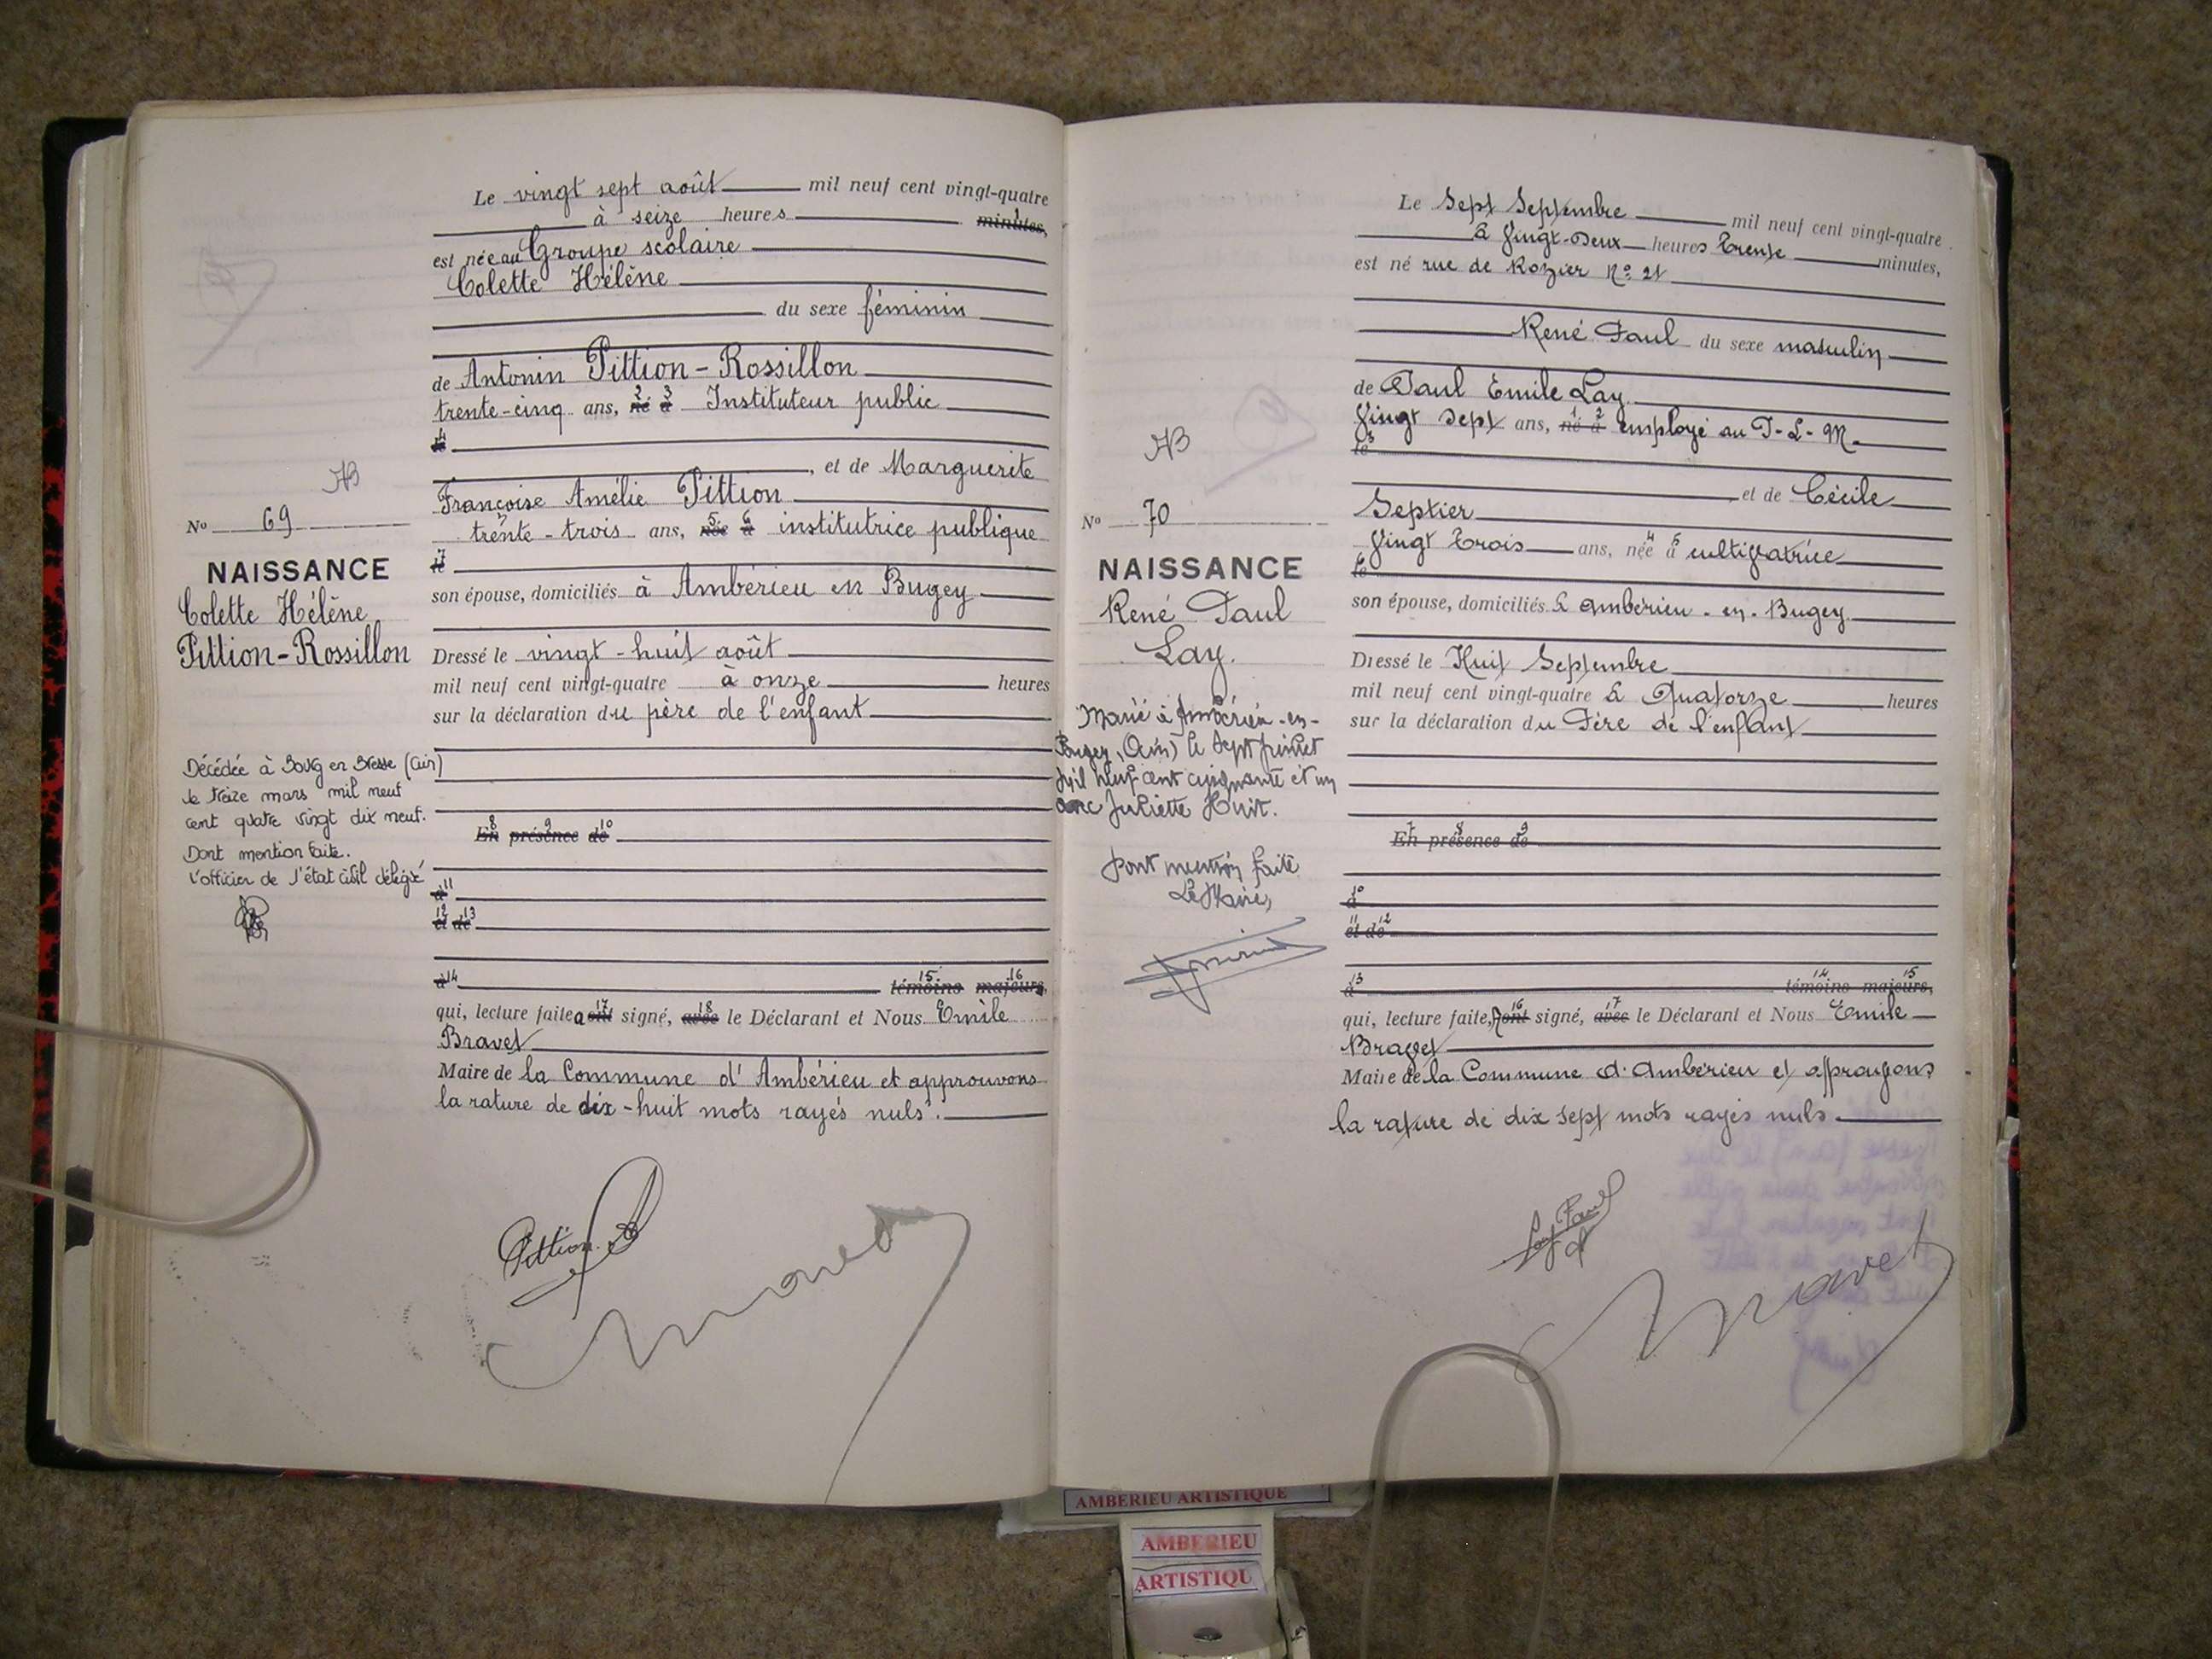 Le vingt sept août mil neuf cent vingt-quatre
à seize heures minutes,
est née au Groupe scolaire
Colette Hélène
du sexe féminin
de Antonin Pittion-Rossillon
trente-cinq ans, né 2 à 3 Instituteur public
le 4
, et de Marguerite
Françoise Amélie Pittion
trente-trois ans, née 5 à 6 institutrice publique
le 7
son épouse, domiciliés à Ambérieu en Bugey
Dressé le vingt-huit août
mil neuf cent vingt-quatre à onze heures
sur la déclaration du père de l'enfant
En 8 présence 9 de 10
à 11
et 12 de 13
à 14 témoins 15 majeurs 16,
qui, lecture faite a ont 17 signé, avec 18 le Déclarant et Nous Emile
Bravet
Maire de la Commune d'Ambérieu et approuvons
la rature de dix-huit mots rayés nuls.
Pittion
Bravet
AB
No 69
NAISSANCE
Colette Hélène
Pittion-Rossillon
Décédée à Bourg en Bresse (Ain)
le treize mars mil neuf
cent quatre vingt dix neuf.
Dont mention faite.
l'officier de l'état civil délégué
Le Sept Septembre mil neuf cent vingt-quatre
à Vingt-Deux heures Trente minutes,
est né rue de Rozier No 21
René Paul du sexe masculin
de Paul Emile Lay
Vingt Sept ans, né 1 à 2 employé au P-L-M.
le 3
et de Cécile
Septier
Vingt Trois ans, née 4 à 5 cultivatrice
le 6
son épouse, domiciliés à Ambérieu-en-Bugey
Dressé le Huit Septembre
mil neuf cent vingt-quatre à Quatorze heures
sur la déclaration du Père de l'enfant
En 7 présence 8 de 9
à 10
et 11 de 12
à 13 témoins 14 majeurs 15,
qui, lecture faite, ont 16 signé, avec 17 le Déclarant et Nous Emile
Bravet
Maire de la Commune d'Ambérieu et approuvons
la rature de dix sept mots rayés nuls.
Lay Paul
Bravet
AB
No 70
NAISSANCE
René Paul
Lay.
Marié à Ambérieu-en-
Bugey (Ain) le sept juillet
mil neuf cent cinquante et un
avec Juliette Huit.
Dont mention faite
Le Maire,
AMBERIEU ARTISTIQUE
AMBERIEU
ARTISTIQU